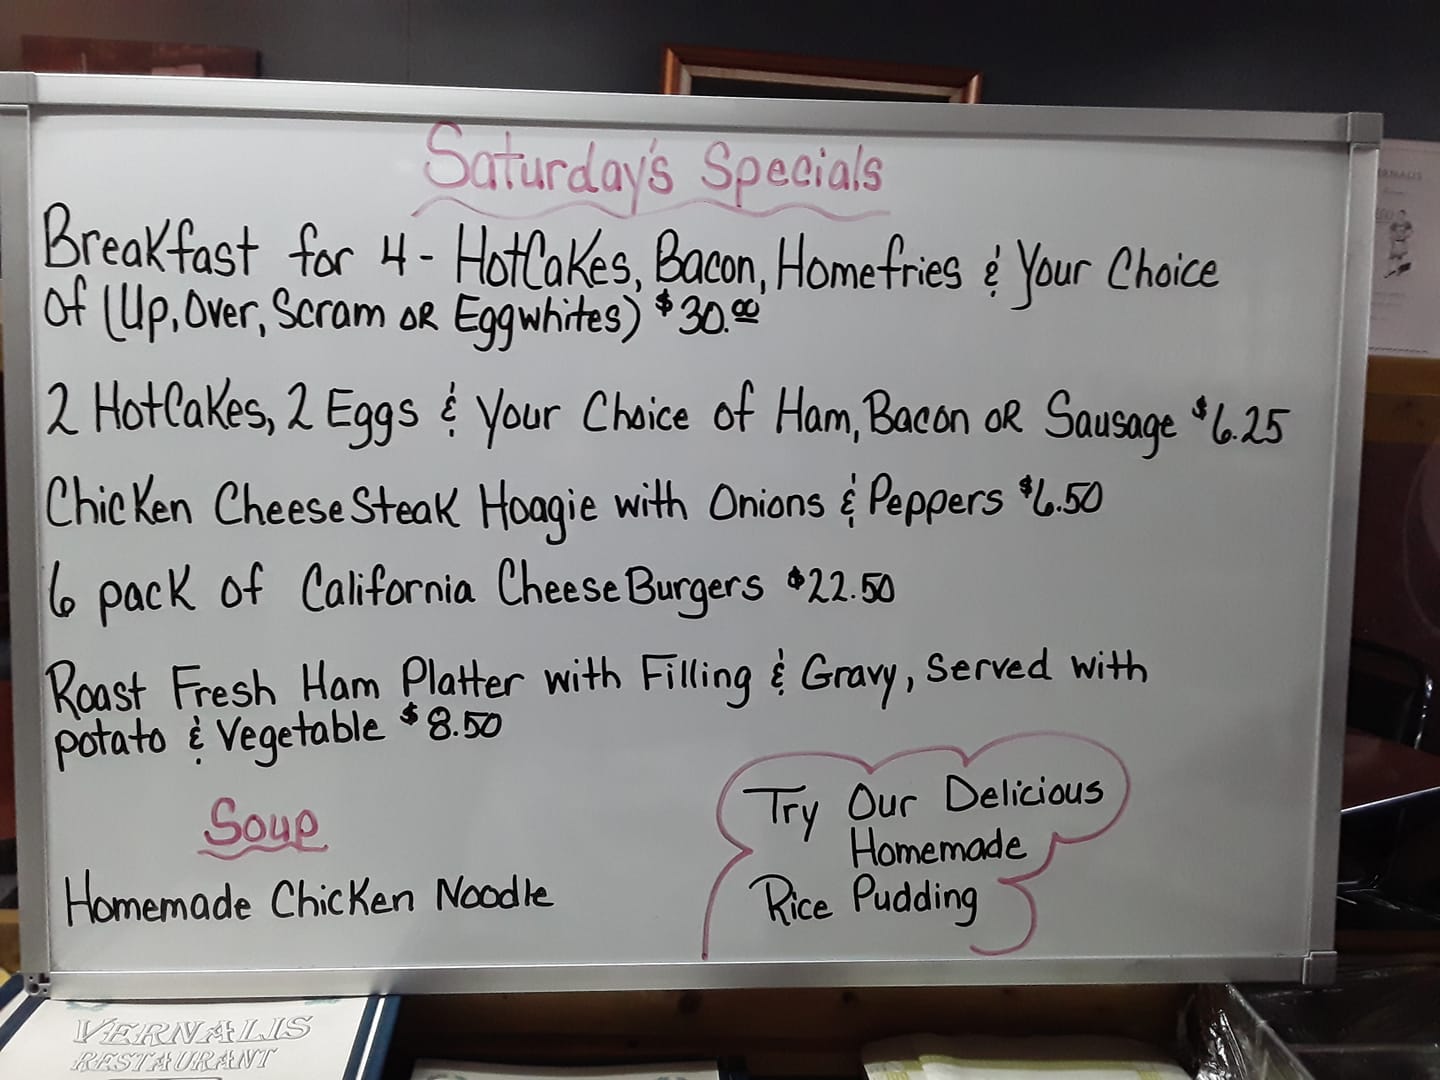 Saturday's Specials
Breakfast for 4 - HotCakes, Bacon, Homefries & Your Choice
Of (Up, Over, Scram OR Eggwhites) $30.00
2 HotCakes, 2 Eggs & Your Choice of Ham, Bacon OR Sausage $6.25
Chicken CheeseSteak Hoagie with Onions & Peppers $6.50
6 pack of California CheeseBurgers $22.50
Roast Fresh Ham Platter with Filling & Gravy, Served with
potato & Vegetable $8.50
Soup
Homemade Chicken Noodle
Try Our Delicious
Homemade
Rice Pudding
VERNALIS
RESTAURANT